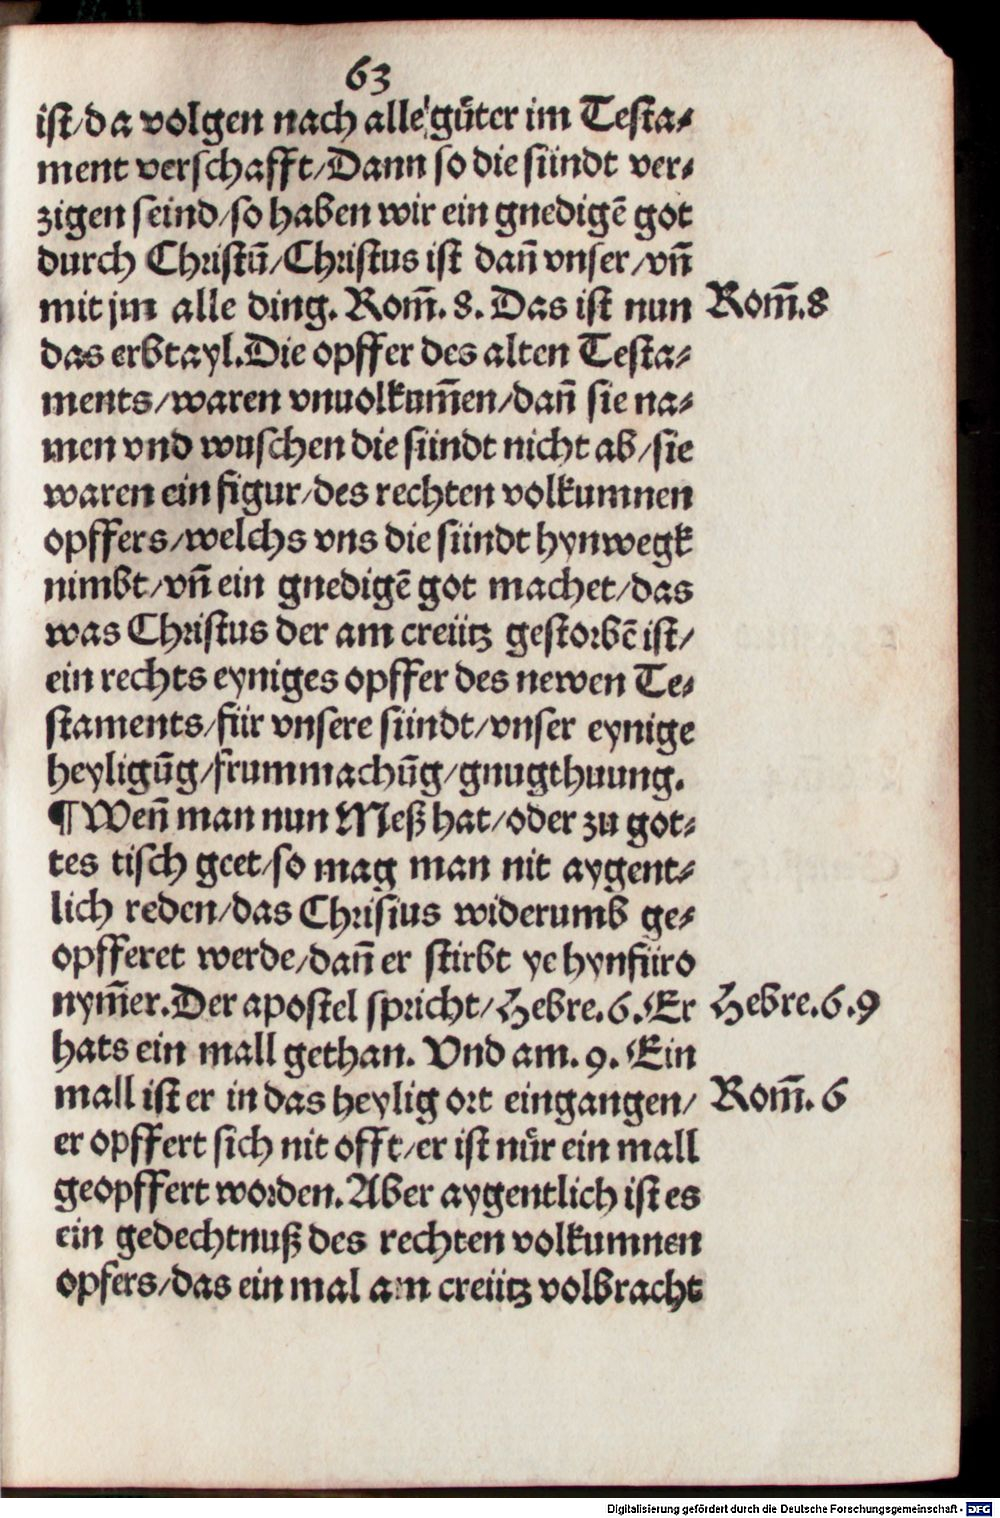 63
ist/da volgen nach alle güter im Testa⸗
ment verschafft/Dann so die sündt ver⸗
zigen seind/so haben wir ein gnedigē got
durch Christū/Christus ist dañ vnser/vñ
mit jm alle ding. Rom̄. 8. Das ist nun
Rom̄.8
das erbtayl.Die opffer des alten Testa⸗
ments/waren vnuolkum̄en/dañ sie na⸗
men vnd wuschen die sündt nicht ab/sie
waren ein figur/des rechten volkumnen
opffers/welchs vns die sündt hynwegk
nimbt/vñ ein gnedigē got machet/das
was Christus der am creütz gestorbē ist/
ein rechts eyniges opffer des newen Te⸗
staments/für vnsere sündt/vnser eynige
heyligūg/frummachūg/gnugthuung.
¶ Weñ man nun Meß hat/oder zu got⸗
tes tisch geet/so mag man nit aygent⸗
lich reden/das Christus widerumb ge⸗
opfferet werde/dañ er stirbt ye hynfüro
nym̄er.Der apostel spricht/Hebre.6.Er
Hebre.6.9
hats ein mall gethan. Vnd am. 9. Ein
mall ist er in das heylig ort eingangen/
Rom̄. 6
er opffert sich nit offt/er ist nůr ein mall
geopffert worden.Aber aygentlich ist es
ein gedechtnuß des rechten volkumnen
opfers/das ein mal am creütz volbracht
Digitalisierung gefördert durch die Deutsche Forschungsgemeinschaft - DFG